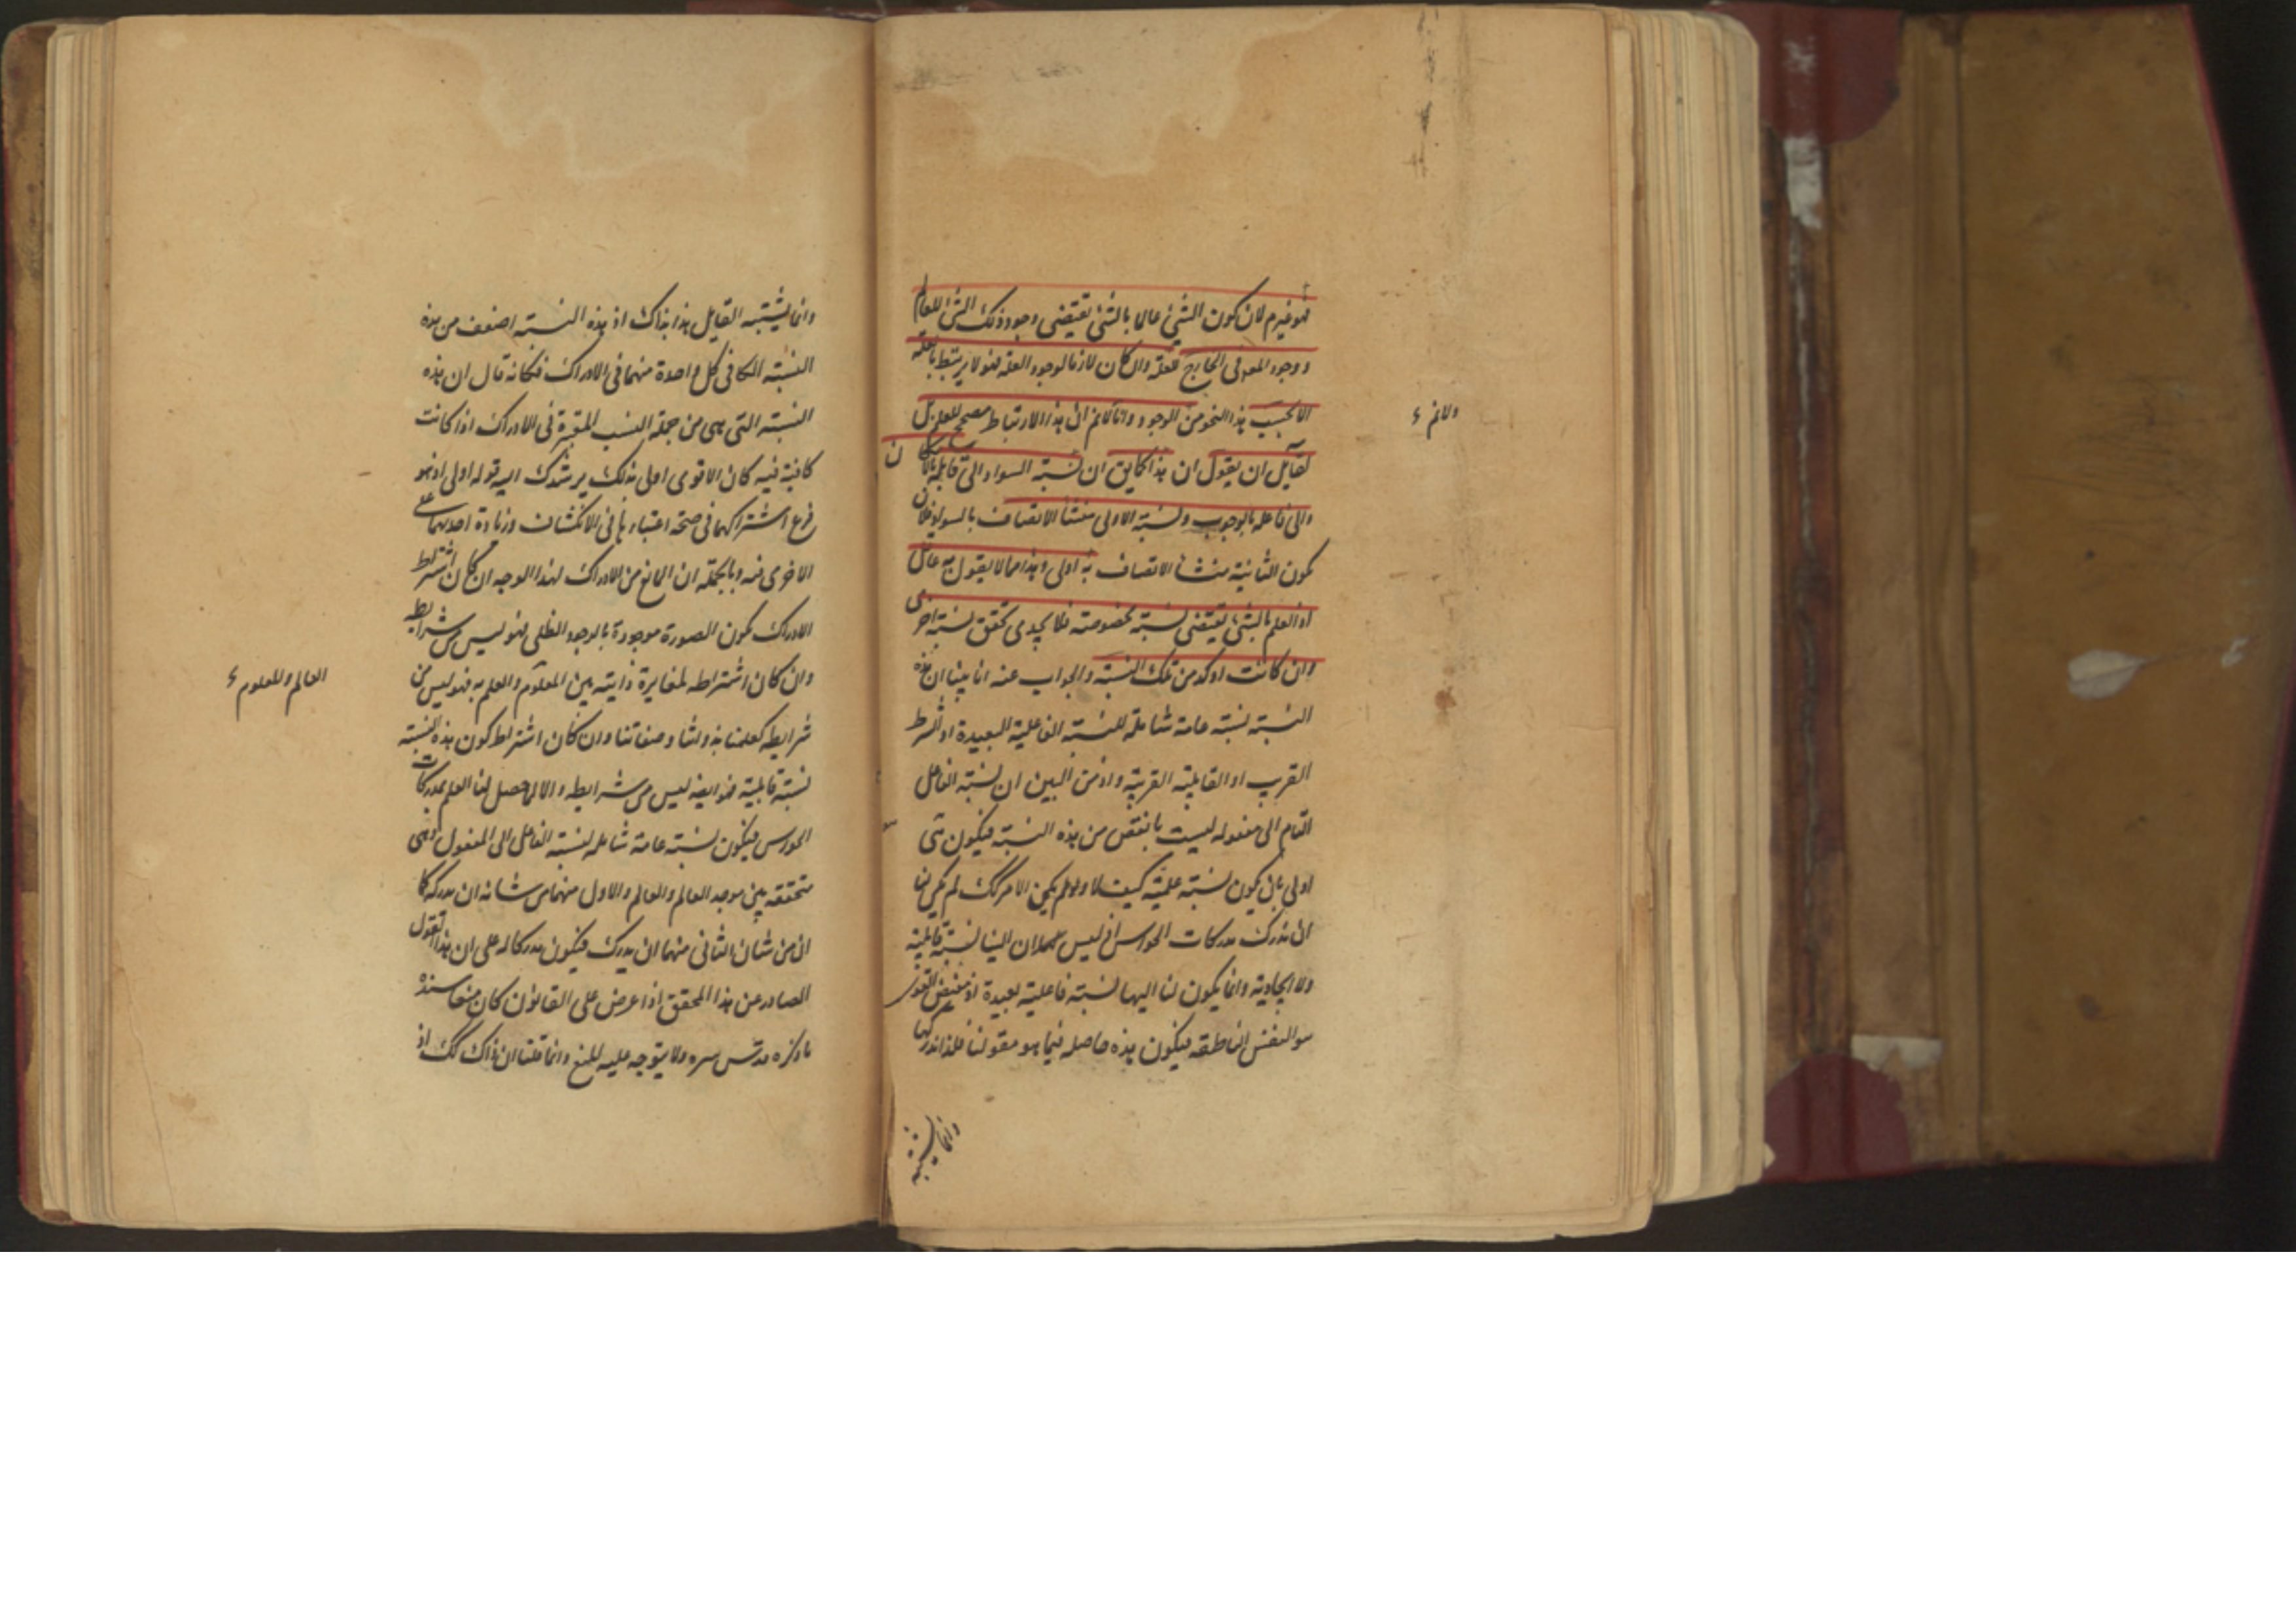 فهو غير م لان كون الشئ عالما بالشئ يقتضى وجود ذلك الشئ للعالم
ووجود المع فى الخارج للعلة وان كان لازما لوجود العلة فهو لا يرتبط بالعلة
الا بحسب هذا النحو من الوجود وانا لانم ان هذا الارتباط مصحح للعلم بل
ولانم
لقايل ان يقول ان هذا كما يق ان نسبة السواد الى قابله بالامكان
والى فاعله بالوجوب ونسبة الاولى منشأ الاتصاف بالسواد فلان
يكون الثانية منشأ الاتصاف به اولى وهذا مما لا يقول به عاقل
اذ العلم بالشئ يقتضى نسبة مخصوصة فلا يجدى تحقق نسبة اخرى
وان كانت اوكد من تلك النسبة والجواب عنه انا بينا ان هذه
النسبة نسبة عامة شاملة للنسبة الفاعلية البعيدة او الشرط
القريب او القابلية القريبة واذ من البين ان نسبة الفاعل
التام الى مفعوله ليست بانقص من هذه النسبة فيكون هى
اولى بان يكون نسبة علمية كيف لا ولو لم يكن الامر كك لم يكن لنا
ان ندرك مدركات الحواس اذ ليس لها الينا نسبة قابلية
ولا ايجادية وانما يكون لنا اليها نسبة فاعلية بعيدة اذ مفيض القوى
هو النفس الناطقة فيكون هذه حاصلة فيما هو مقولنا فلذا ندركها
وانما يشتبه
وانما يشتبه القايل هذا بذاك اذ هذه النسبة اضعف من هذه
النسبة المكافى كل واحدة منهما فى الادراك فكانه قال ان هذه
النسبة التى هى من جملة النسب المعتبرة فى الادراك اذا كانت
كافية فيه كان الاقوى اولى بذلك يرشدك اليه قوله اولى اذ هو
فرع اشتراكهما فى صحة اعتبارها فى الانكشاف وزيادة احديهما على
الاخرى فيه وبالجملة ان المانع من الادراك لهذا الوجه ان كان اشتراط
الادراك بكون الصورة موجودة بالوجود الظلى فهو ليس من شرايطه
وان كان اشتراطه لمغايرة ذاتية بين المعلوم والعلم به فهو ليس من
العالم والمعلوم
شرايطه كعلمنا بذواتنا وصفاتنا وان كان اشتراط كون هذه النسبة
نسبة قابلية فهو ايضا ليس من شرايطه والا لما حصل لنا العلم بمدركات
الحواس فيكون نسبة عامة شاملة لنسبة الفاعل الى المفعول وهى
متحققة بين موجد العالم والعالم والاول منهما من شانه ان يدركه كما
ان من شان الثانى منهما ان يدرك فيكون مدركا له على ان هذا القول
الصادر عن هذا المحقق اذا عرض على القانون كان منعا سنده
ما ذكره قدس سره ولا يتوجه عليه المنع وانما قلنا ان ذاك كك اذ